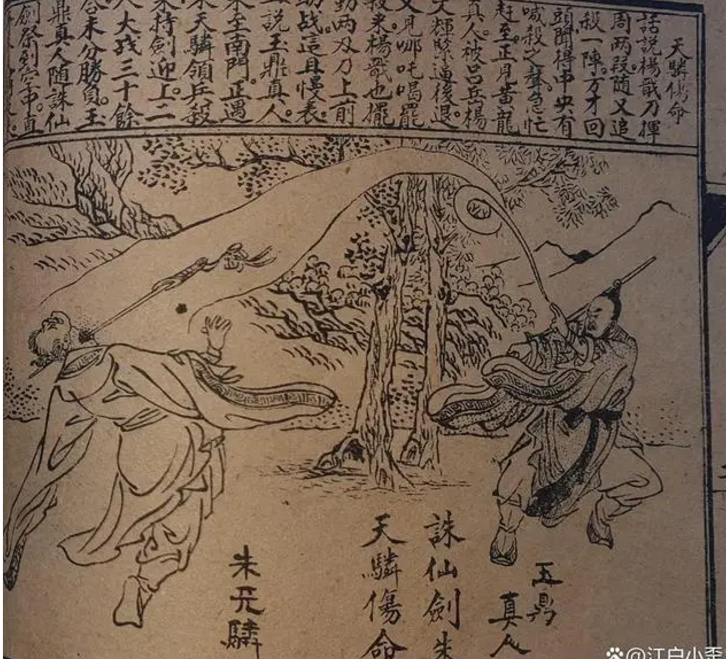 天驎傷命
話說楊戩刀揮
周兩段隨又追
殺一陣方才回
頭聞得中央有
喊殺之聲急忙
赶至正見黃龍
真人被呂岳楊
文輝緊逼後退。
又見哪吒喝罷
殺來楊戩也擺
動兩刃刀上前
助战這且慢表。
說玉鼎真人。
來至南門正遇
朱天驎領兵殺
來持劍迎上二
人大战三十餘
合未分勝負。玉
鼎真人随誅仙
劍祭到空中。直
玉鼎
真人
誅仙劍朱
天驎傷命
朱天驎
@江户小歪